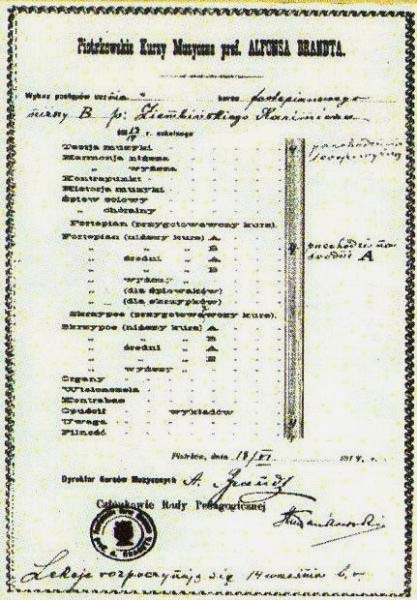 Piotrkowskie Kursy Muzyczne prof. ALFONSA BRANDTA.
Wykaz postępów ucznia kursu fortepianowego
niższy B p. Kazimierza
19 13/14 r. szkolnego
Teorja muzyki 4 przechodzi na
Harmonja niższa
„ wyższa
Kontrapunkt
Historja muzyki
Śpiew solowy
„ chóralny
Fortepian (przygotowawczy kurs).
Fortepian (niższy kurs) A 4 przechodzi na
„ „ B średni A
„ średni A
„ „ B
„ wyższy
„ (dla śpiewaków)
„ (dla skrzypków)
Skrzypce (przygotowawczy kurs).
Skrzypce (niższy kurs) A
„ „ B
„ średni A
„ „ B
„ wyższy
Organy
Wiolonczela
Kontrabas
Opuścił wykładów
Uwaga
Pilność 4
Piotrków, dnia 18/VI 1914 r.
Dyrektor Kursów Muzycznych A. Brandt
Członkowie Rady Pedagogicznej
A. BRANDTA
Lekcje rozpoczynają się 14 września b.r.